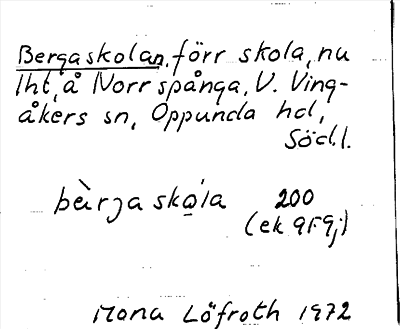 Bergaskolan, förr skola, nu
lht, å Norrspånga, V. Ving-
åkers sn, Oppunda hd,
Södl.
bàrjaskọ́la 200
(ek 9F9j)
Mona Löfroth 1972